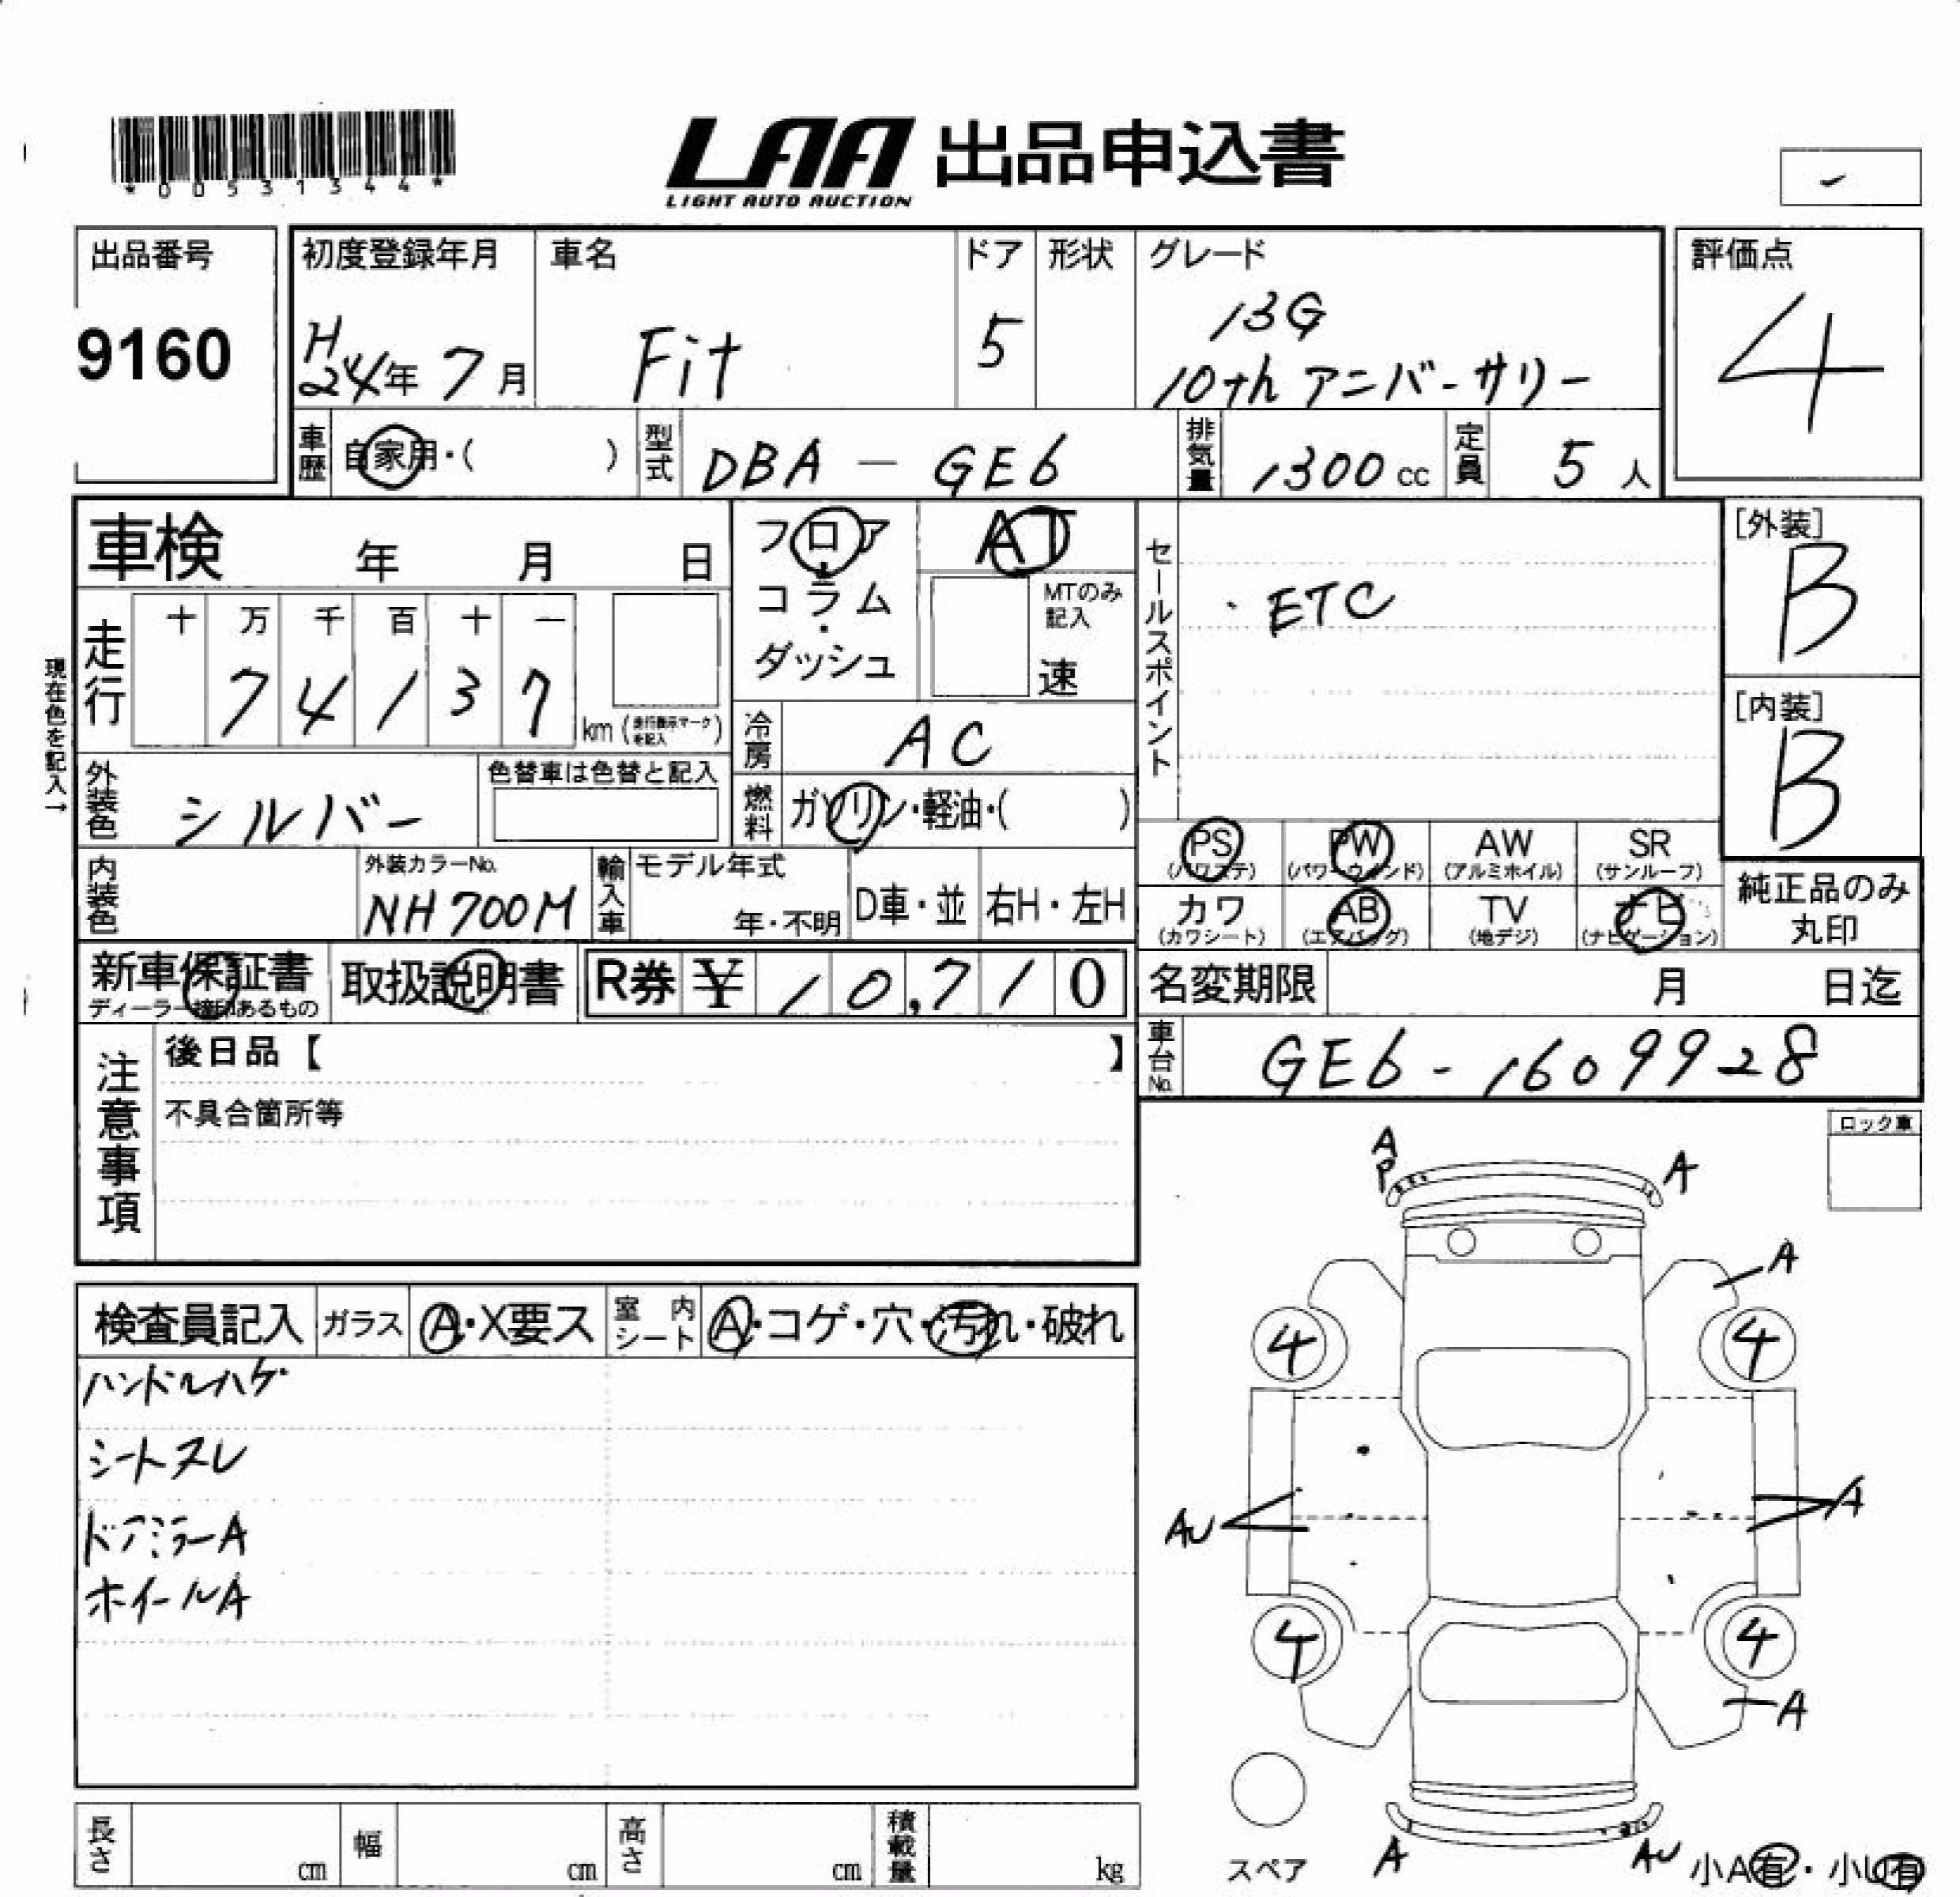 *00531344*
LAA 出品申込書
LIGHT AUTO AUCTION
出品番号
9160
初度登録年月
H
24年 7月
車名
Fit
ドア
5
形状
グレード
13G
10th アニバーサリー
評価点
4
車歴
自家用・( )
型式
DBA - GE6
排気量
1300 cc
定員
5 人
車検 年 月 日
フロア
・
コラム
・
ダッシュ
AT
MTのみ
記入
速
セールスポイント
・ETC
[外装]
B
[内装]
B
現在色を記入→
走行
十 万 千 百 十 一
7 4 1 3 7
km (走行表示マークを記入)
冷房
AC
外装色
シルバー
色替車は色替と記入
燃料
ガソリン・軽油・( )
PS
(パワステ)
PW
(パワーウインド)
AW
(アルミホイル)
SR
(サンルーフ)
内装色
外装カラーNo.
NH700M
輸入車
モデル年式
年・不明
D車・並
右H・左H
カワ
(カワシート)
AB
(エアバッグ)
TV
(地デジ)
ナビ
(ナビゲーション)
純正品のみ
丸印
新車保証書
ディーラー捺印あるもの
取扱説明書
R券 ¥ 10,710
名変期限 月 日迄
注意事項
後日品【 】
不具合箇所等
車台No.
GE6-1609928
ロック車
検査員記入
ガラス
A・X要ス
室内シート
A・コゲ・穴・汚れ・破れ
ハンドルハゲ
シートスレ
ドアミラーA
ホイールA
A
P
A
A
4
4
AU
A
4
4
A
A
AU
スペア
小A有・小U有
長さ cm
幅 cm
高さ cm
積載量 kg